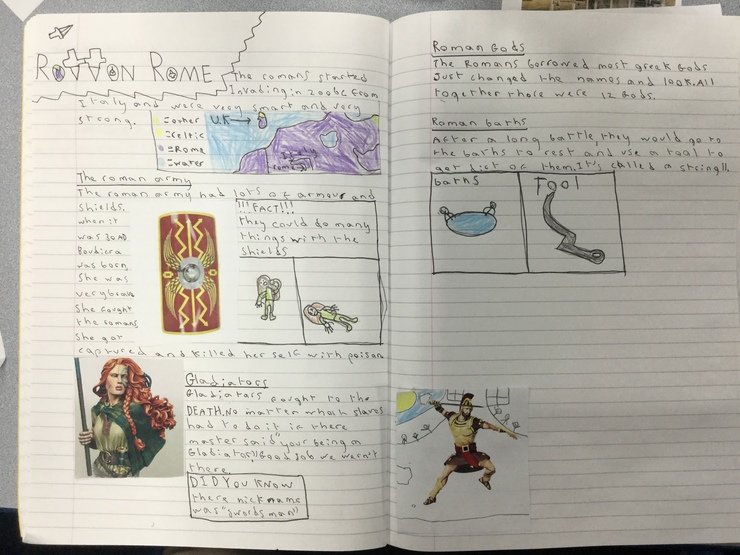 ROTTON ROME
The romans started
Invading in 200bc from
Italy and were very smart and very
strong.
U.K
=other
=Celtic
=Rome
=water
Italy
The roman army
The roman army had lots of armour and
shields.
when it
was 30 AD
Boudicra
was born
She was
very brave
She fought
the romans
She got
captured and killed her self with poison
!!!FACT!!!
they could do many
things with the
shields
Gladiators
Gladiators fought to the
DEATH. No matter whoth slaves
had to do it if there
master said "your being a
Gladiator"! Good Job we weren't
there.
DID YOU KNOW
there nick name
was "swords man"
Roman Gods
The Romans borrowed most greek Gods
Just changed the names and look. All
together there were 12 Gods.
Roman baths
After a long battle, they would go to
the baths to rest and use a tool to
get dirt of them. It's called a strigil!
baths
Tool